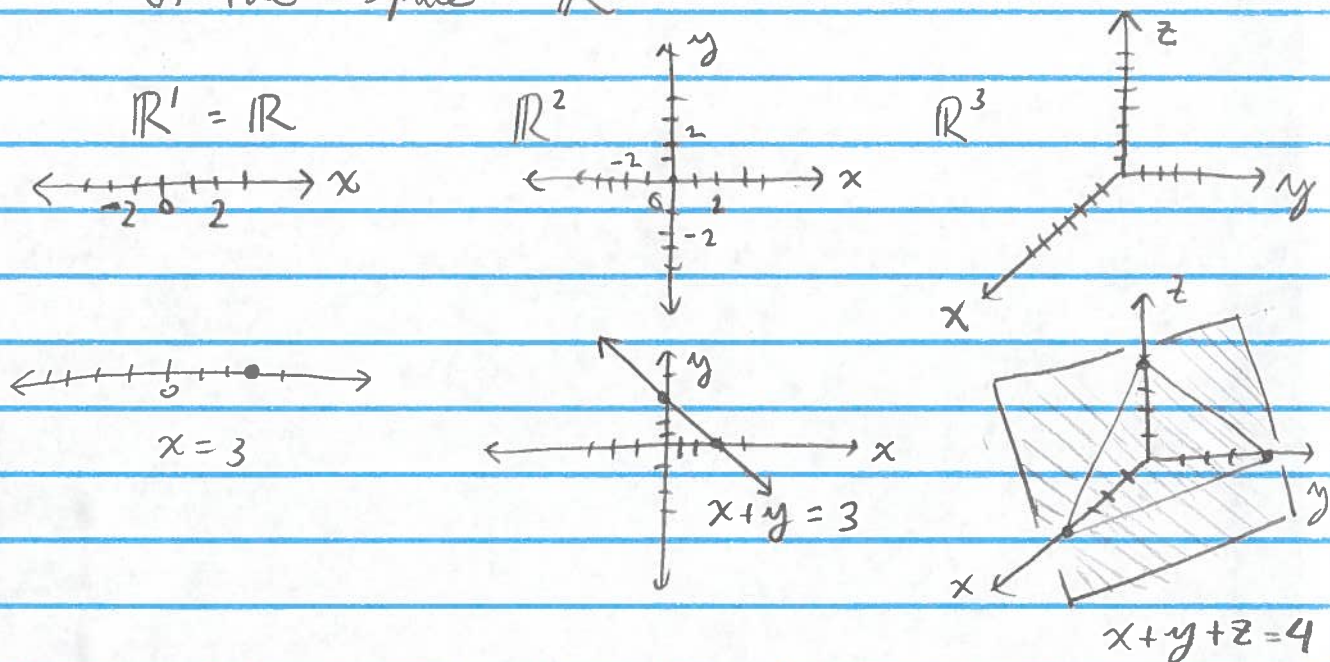 space ℝ
ℝ¹ = ℝ
-2 0 2 x
ℝ²
y
2
-2
x
0 2
-2
ℝ³
z
y
x
0
x = 3
y
x
x+y = 3
z
y
x
x+y+z=4